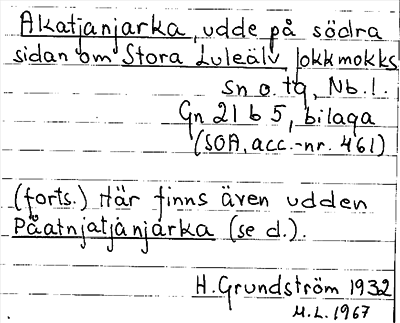 Akatjanjarka, udde på södra
sidan om Stora Luleälv, Jokkmokks
sn o. tg, Nb. l.
Gn 21 b 5, bilaga
(SOA, acc.-nr. 461)
(forts.) Här finns även udden
Påatnjatjanjarka (se d.).
H. Grundström 1932
M.L. 1967